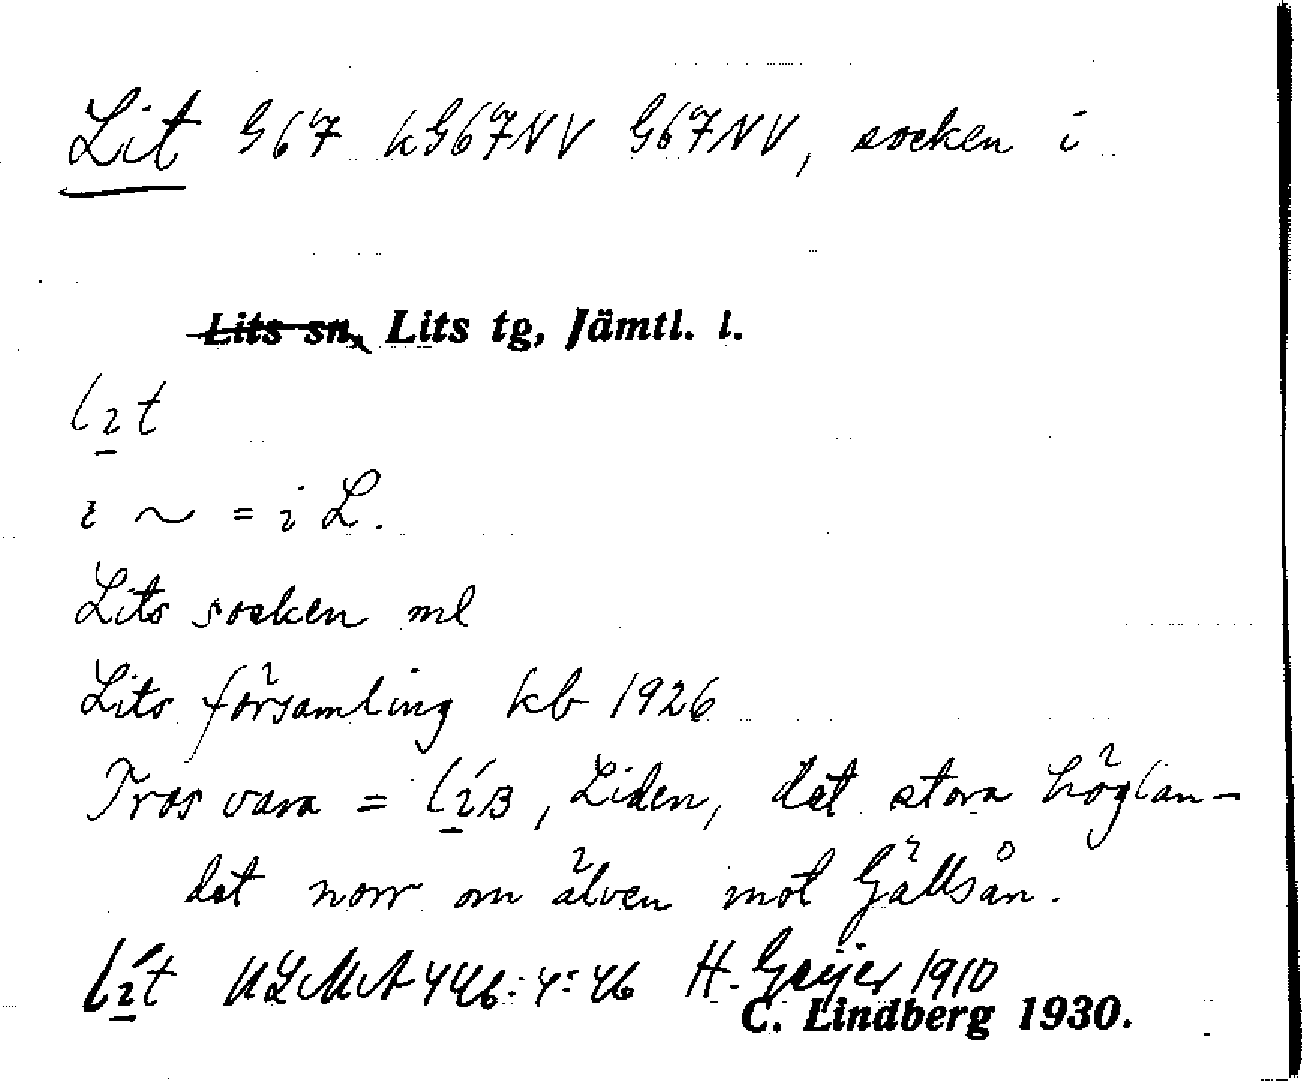 Lit G67 kG67NV G67NV, socken i
Lits sn, Lits tg, Jämtl. l.
lit
i ~ = i L.
Lits socken ml
Lits församling kb 1926
Tros vara = Liden, det stora höglan-
det norr om älven mot Gällsån.
lít ULMA 446:4:46 H. Geijer 1910
C. Lindberg 1930.